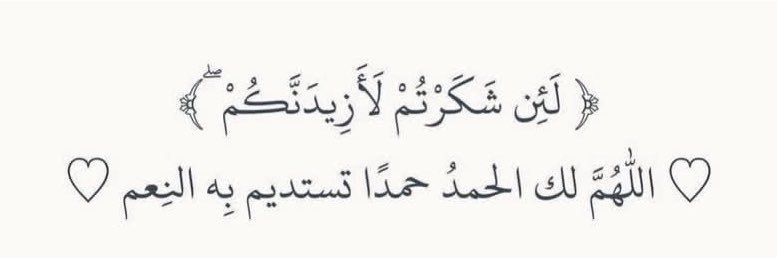 ﴿ لَئِن شَكَرْتُمْ لَأَزِيدَنَّكُمْ ۖ ﴾
♡ اللّٰهُمَّ لك الحمدُ حمدًا تستديم بِه النِعم ♡